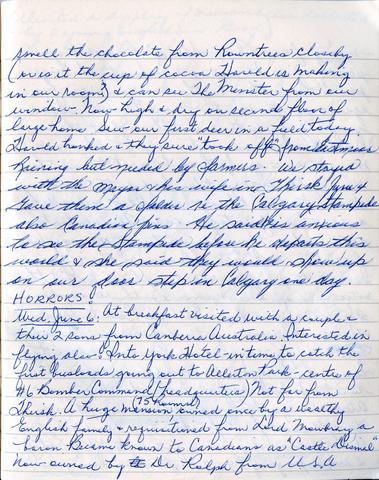 smell the chocolate from Rowntrees closeby
(or is it the cup of cocoa Harold is making
in our room?) & can see The Minster from our
window. Now high & dry on second floor of
large home. Saw our first deer in a field today.
Harold honked & they sure "took off" from
Raining but needed by farmers. We stayed
with the Mayor & his wife in Thirsk June 4
Gave them a folder re the Calgary Stampede
also Canadian pins. He said he is anxious
to see the Stampede before he departs this
world & she said they would show up
on our door step in Calgary one day.
HORRORS
Wed, June 6: At breakfast visited with a couple &
their 2 sons from Canberra Australia. Interested in
flying also. Into York Hotel in time to catch the
first busloads going out to Allerton Park - centre of
#6 Bomber Command (headquarters) Not far from
Thirsk. A huge mansion (75 rooms) owned once by a wealthy
English family & requisitioned from Lord Mowbray a
baron. Became known to Canadians as "Castle Dismal"
Now owned by Dr. Rolph from U.S.A